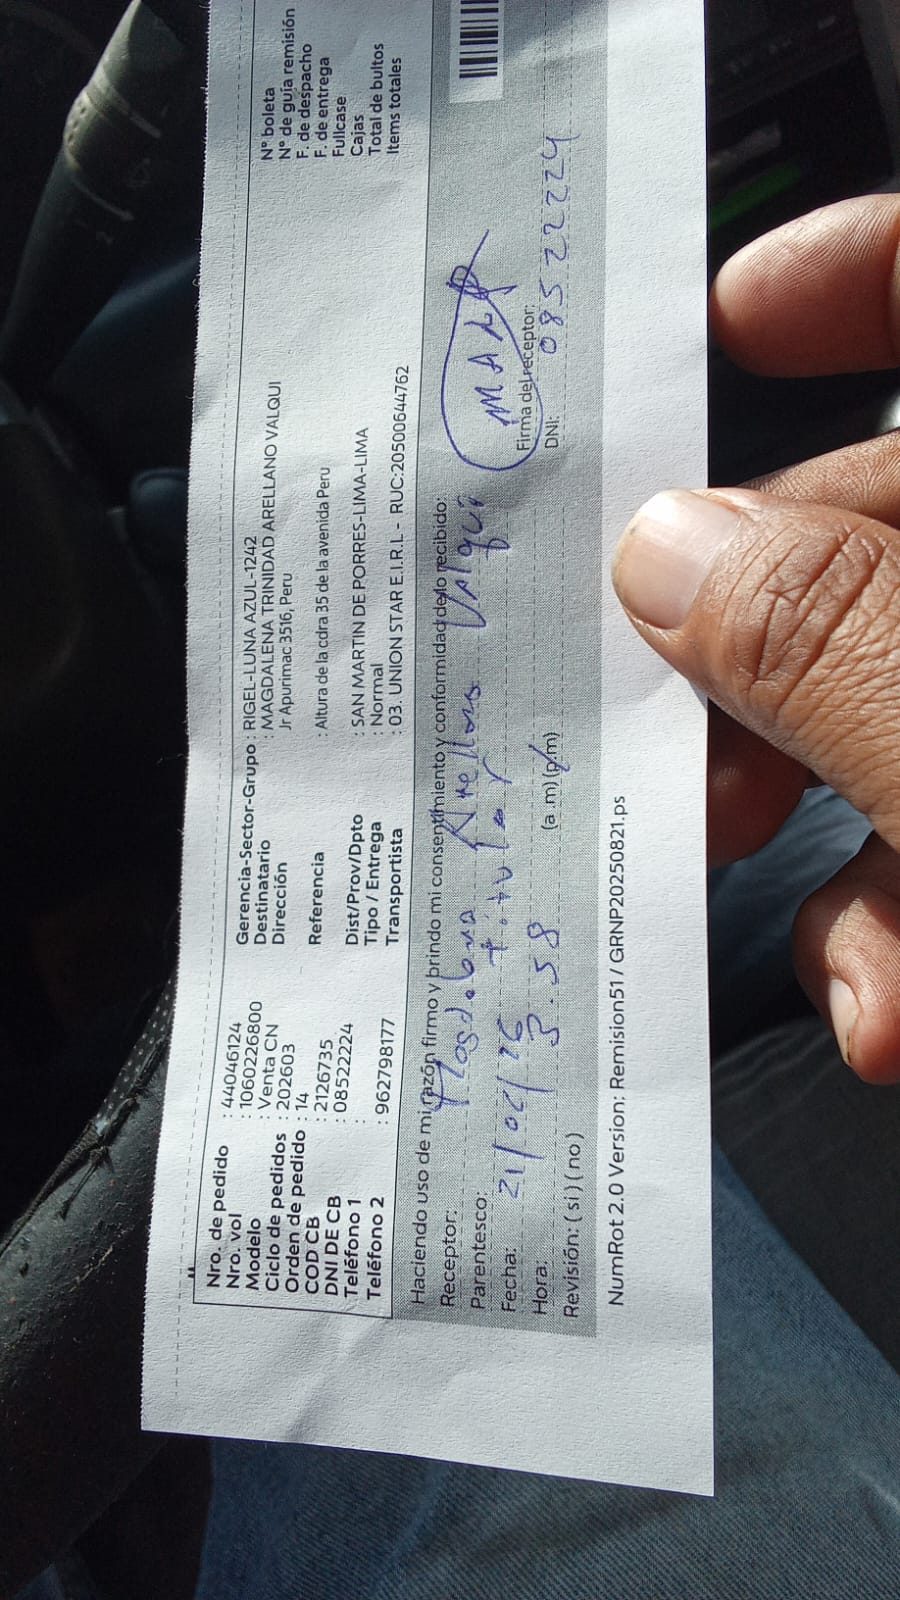 Nro. de pedido : 44046124
Nro. vol : 1060226800
Modelo : Venta CN
Ciclo de pedidos : 202603
Orden de pedido : 14
COD CB : 2126735
DNI DE CB : 08522224
Teléfono 1 :
Teléfono 2 : 962798177
Gerencia-Sector-Grupo : RIGEL-LUNA AZUL-1242
Destinatario : MAGDALENA TRINIDAD ARELLANO VALQUI
Dirección Jr Apurimac 3516, Peru
Referencia : Altura de la cdra 35 de la avenida Peru
Dist/Prov/Dpto : SAN MARTIN DE PORRES-LIMA-LIMA
Tipo / Entrega : Normal
Transportista : 03. UNION STAR E.I.R.L - RUC:20500644762
N° boleta
N° de guía remisión
F. de despacho
F. de entrega
Fullcase
Cajas
Total de bultos
Items totales
Haciendo uso de mi razón firmo y brindo mi consentimiento y conformidad de lo recibido:
Receptor: Arellano Valqui
Parentesco: titular
Fecha: 21/02/26
Hora: 3.58 (a .m) (p/m)
Revisión: ( si ) ( no )
Firma del receptor:
DNI: 08522224
NumRot 2.0 Version: Remision51 / GRNP20250821.ps